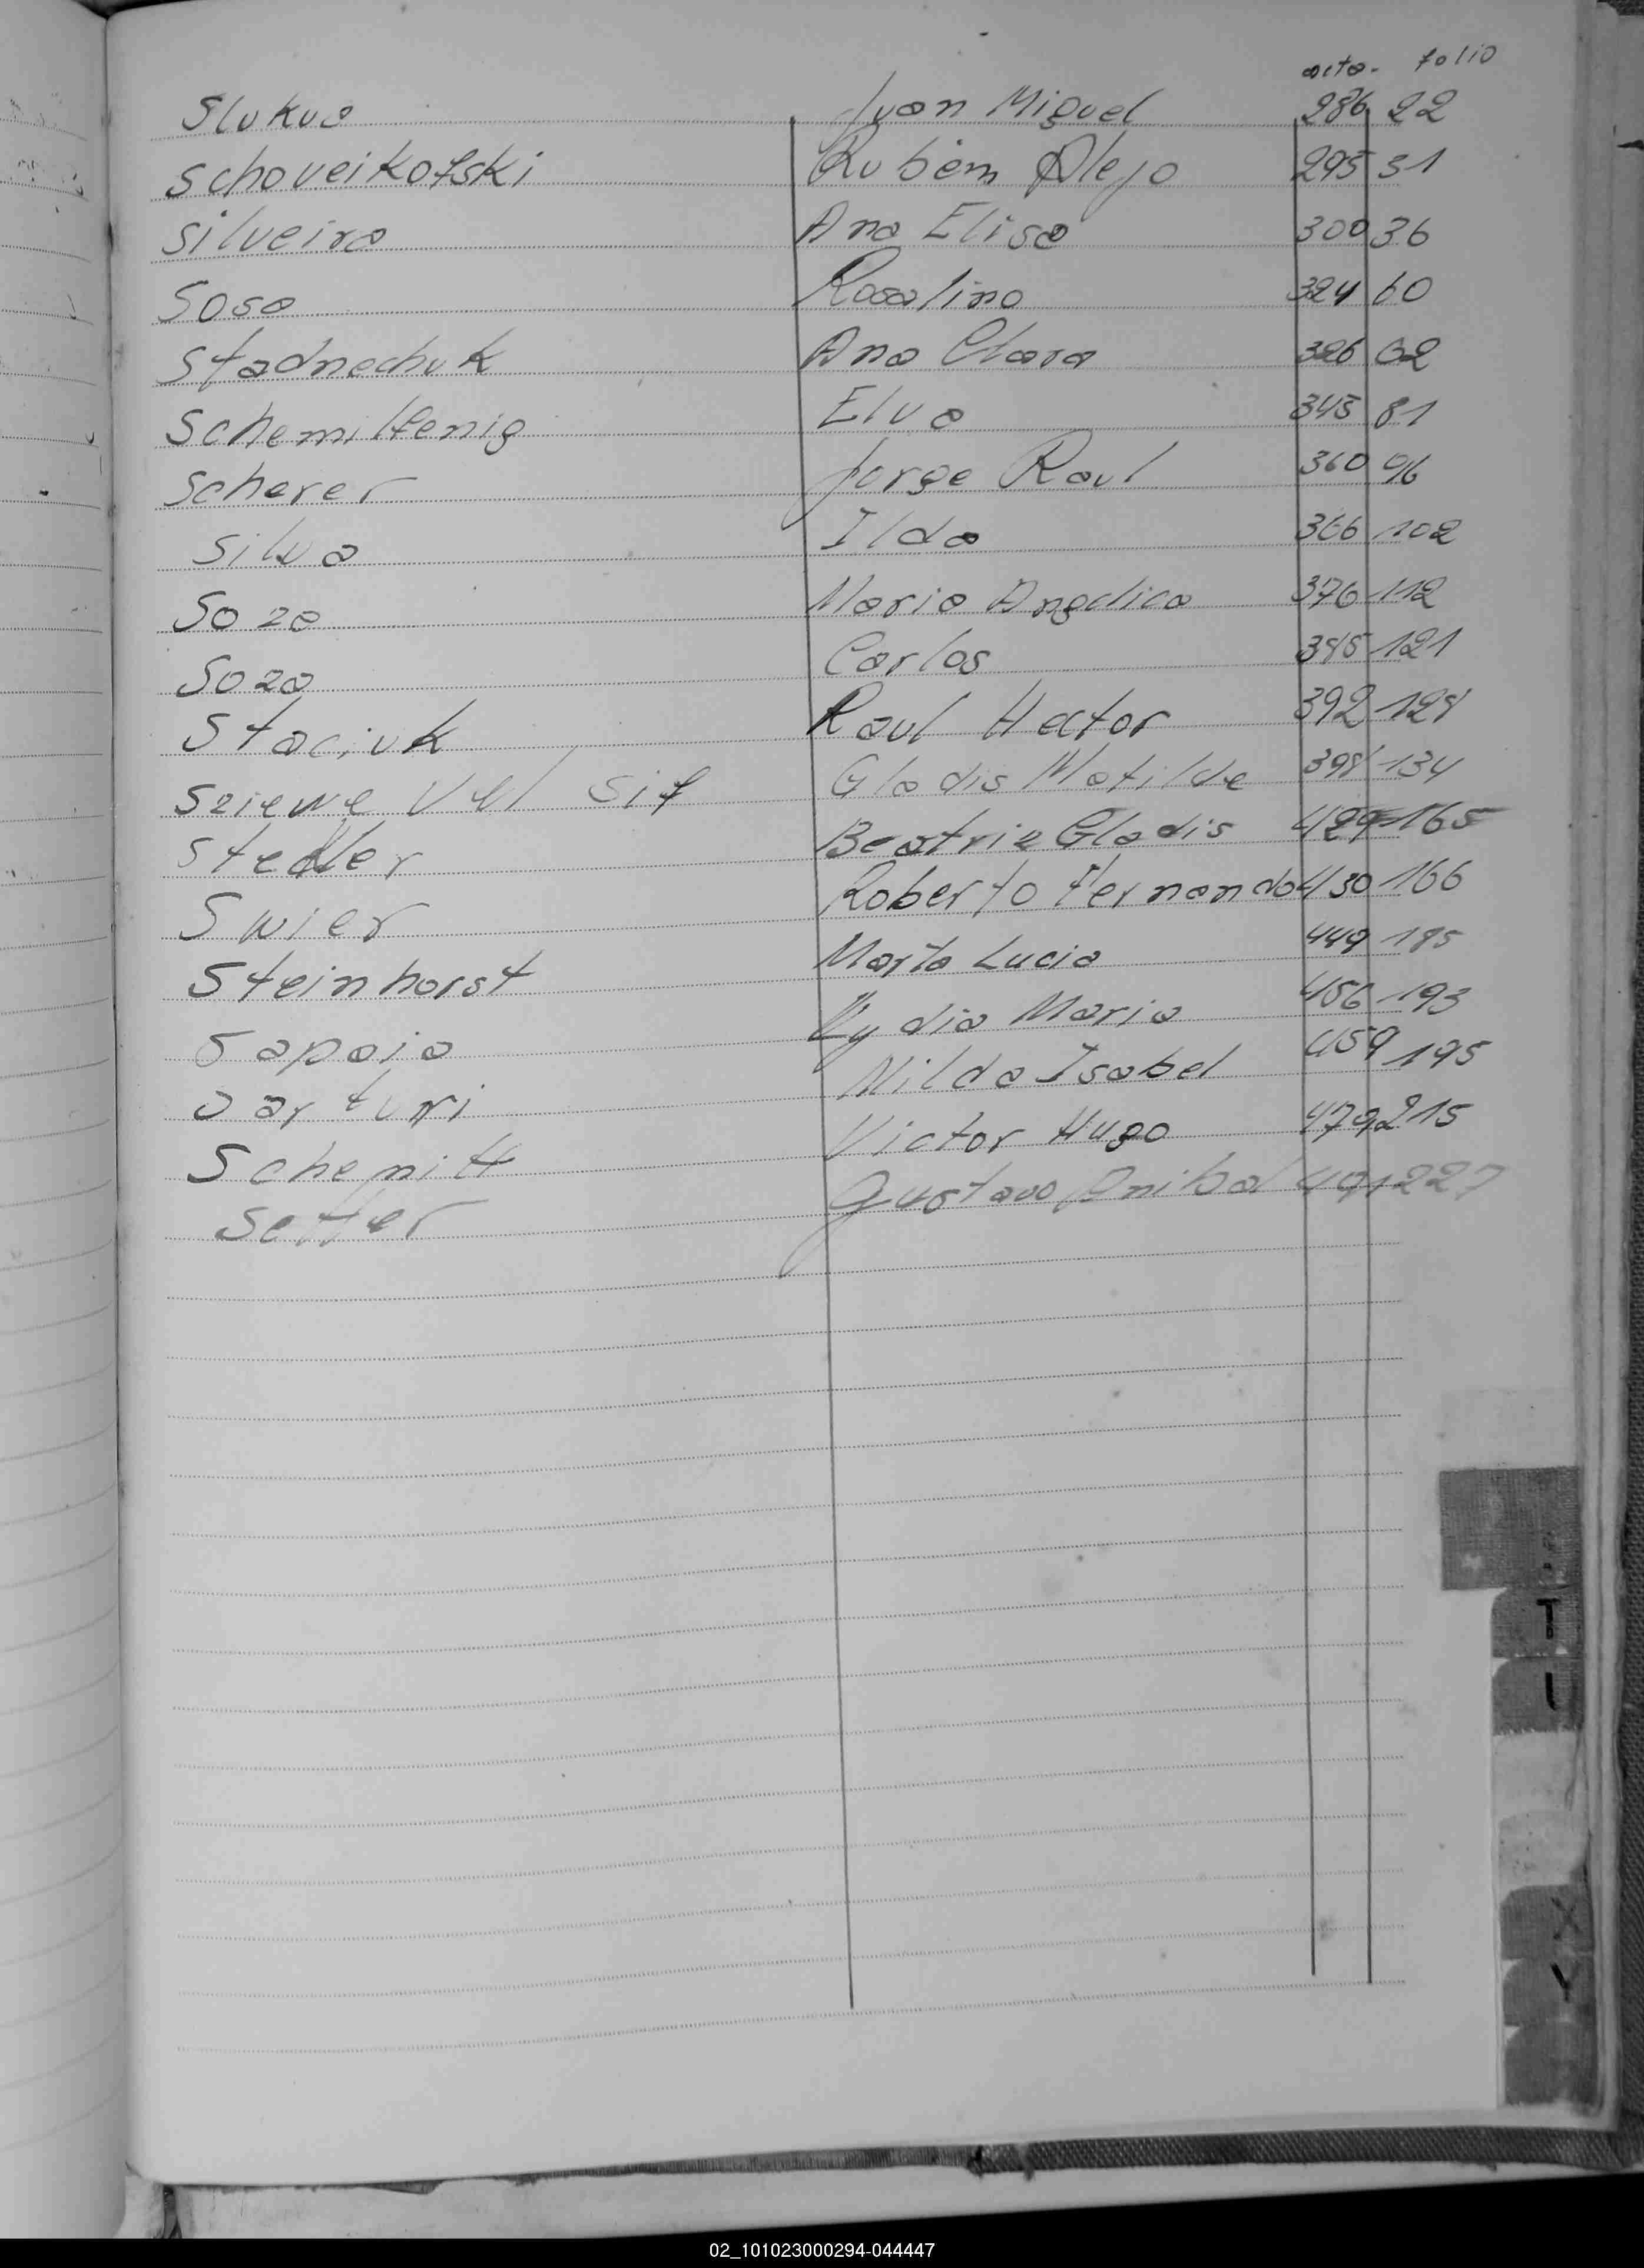 acta. folio
Slukua Juan Miguel 286 22
Schoveikofski Rubén Alejo 295 31
Silveira Ana Elisa 300 36
Sosa Rosalino 324 60
Stadnechuk Ana Clara 326 62
Schemittenig Elva 345 81
Scherer Jorge Raul 360 96
Silva Ilda 366 102
Soza Maria Angelica 376 112
Soza Carlos 385 121
Staciuk Raul Hector 392 128
Sziewe Vel Sif Gladis Matilde 398 134
Stedler Beatriz Gladis 429 165
Swier Roberto Hernando 430 166
Steinhorst Marta Lucia 449 185
Sapaia Lydia Maria 456 193
Sarturi Nilda Isabel 459 195
Schemitt Victor Hugo 479 215
Setter Gustavo Anibal 491 227
T
X
Y
02_101023000294-044447